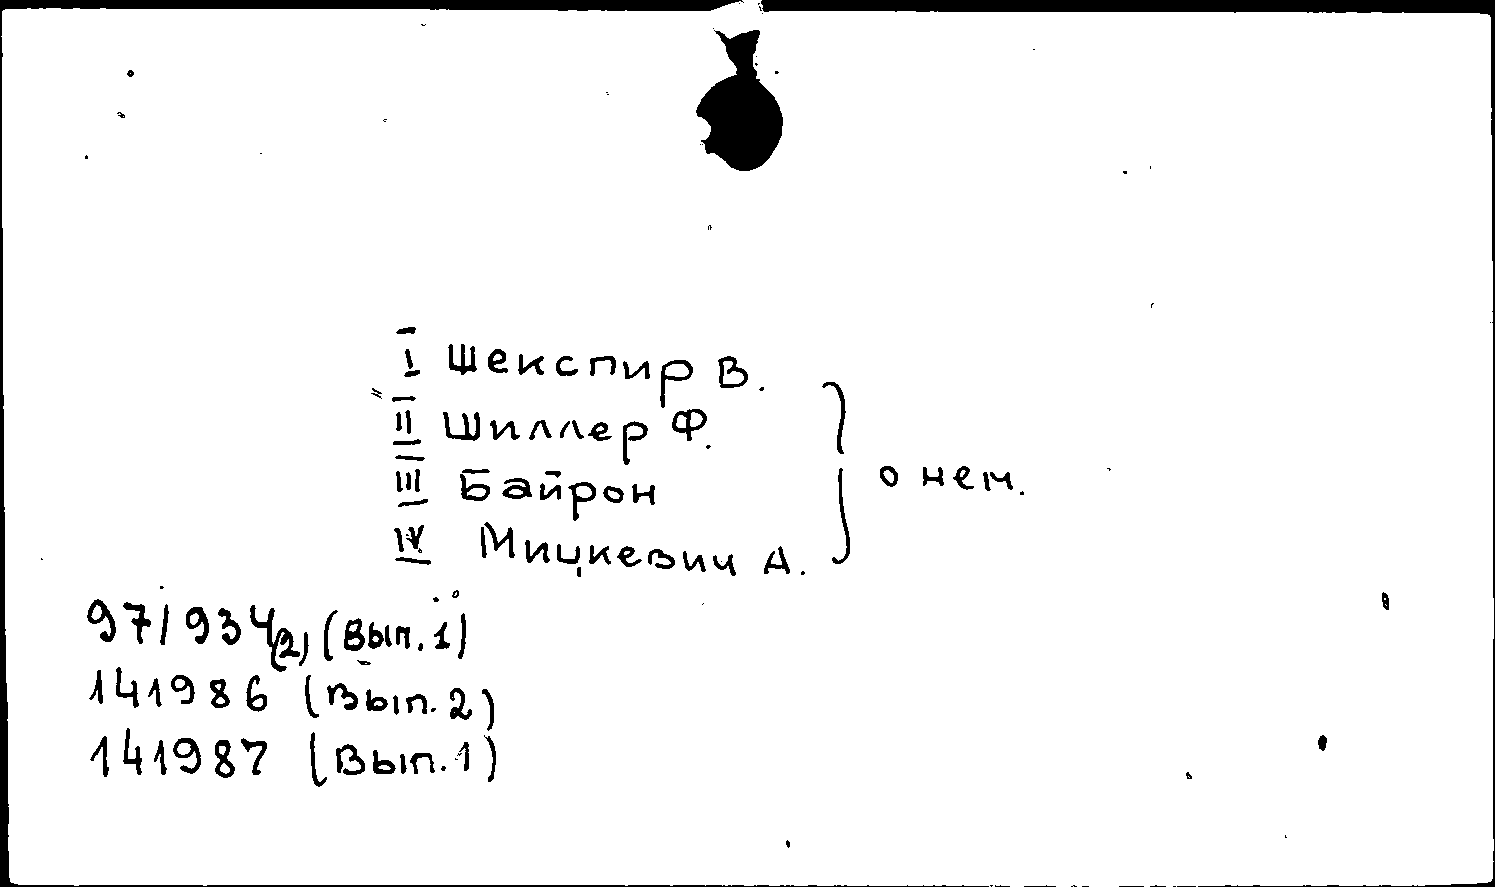 I Шекспир В.
II Шиллер Ф.
III Байрон
IV Мицкевич А.
о нем.
971934(2) (Вып. 1)
141986 (Вып. 2)
141987 (Вып. 1)